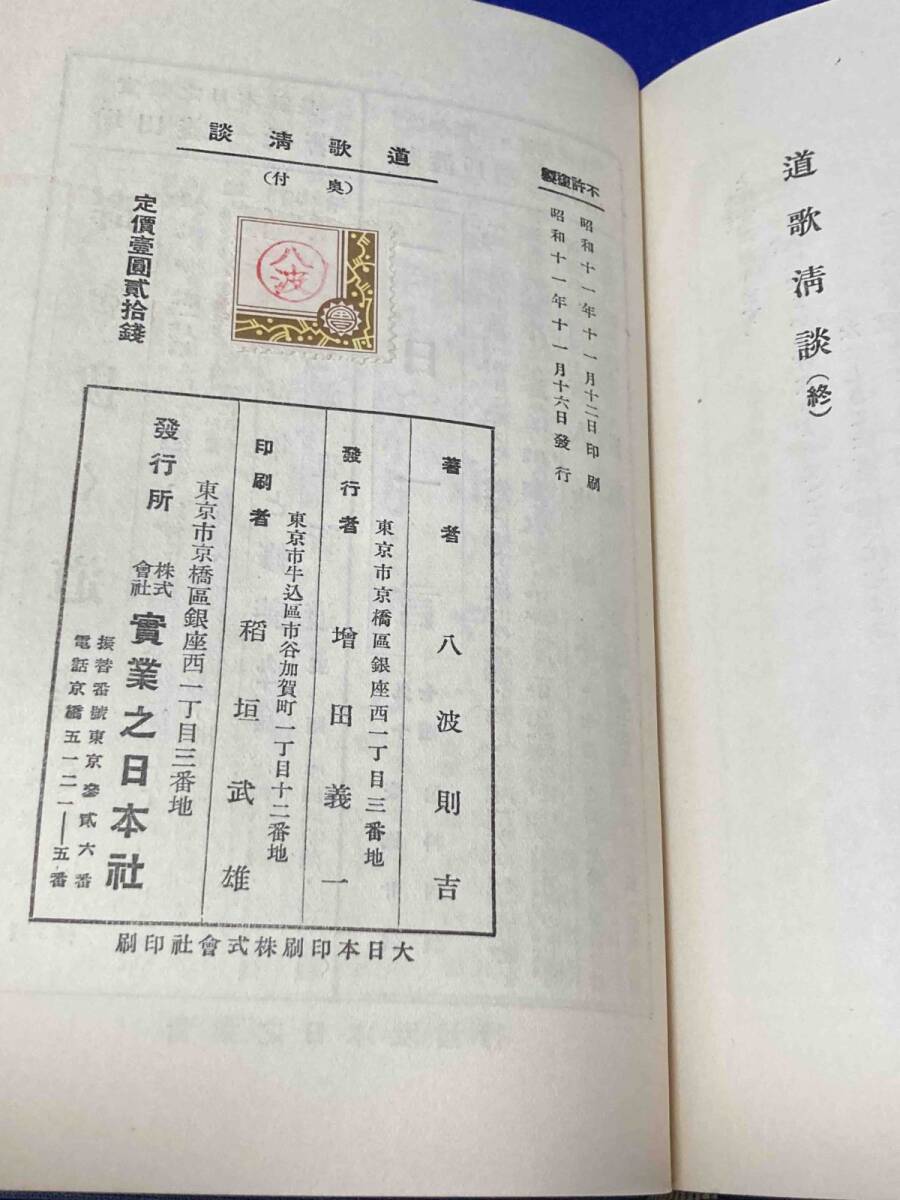 道歌淸談(終)
不許複製
昭和十一年十一月十二日印刷
昭和十一年十一月十六日發行
道歌淸談
(奥付)
八波
定價壹圓貳拾錢
著者 八波則吉
東京市京橋區銀座西一丁目三番地
發行者 增田義一
東京市牛込區市谷加賀町一丁目十二番地
印刷者 稻垣武雄
東京市京橋區銀座西一丁目三番地
發行所 株式會社 實業之日本社
振替番號東京參貳六番
電話京橋五一二一—五番
大日本印刷株式會社印刷